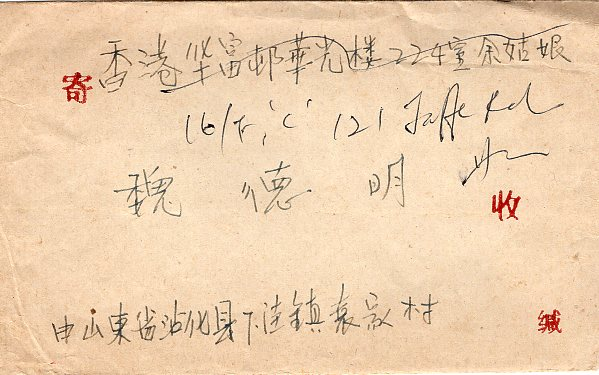 香港华富邨華光楼224室余姑娘
寄
16/F, 'C' 121 Jaffe Rd
魏德明
收
由山東省沾化县下洼镇袁家村
缄